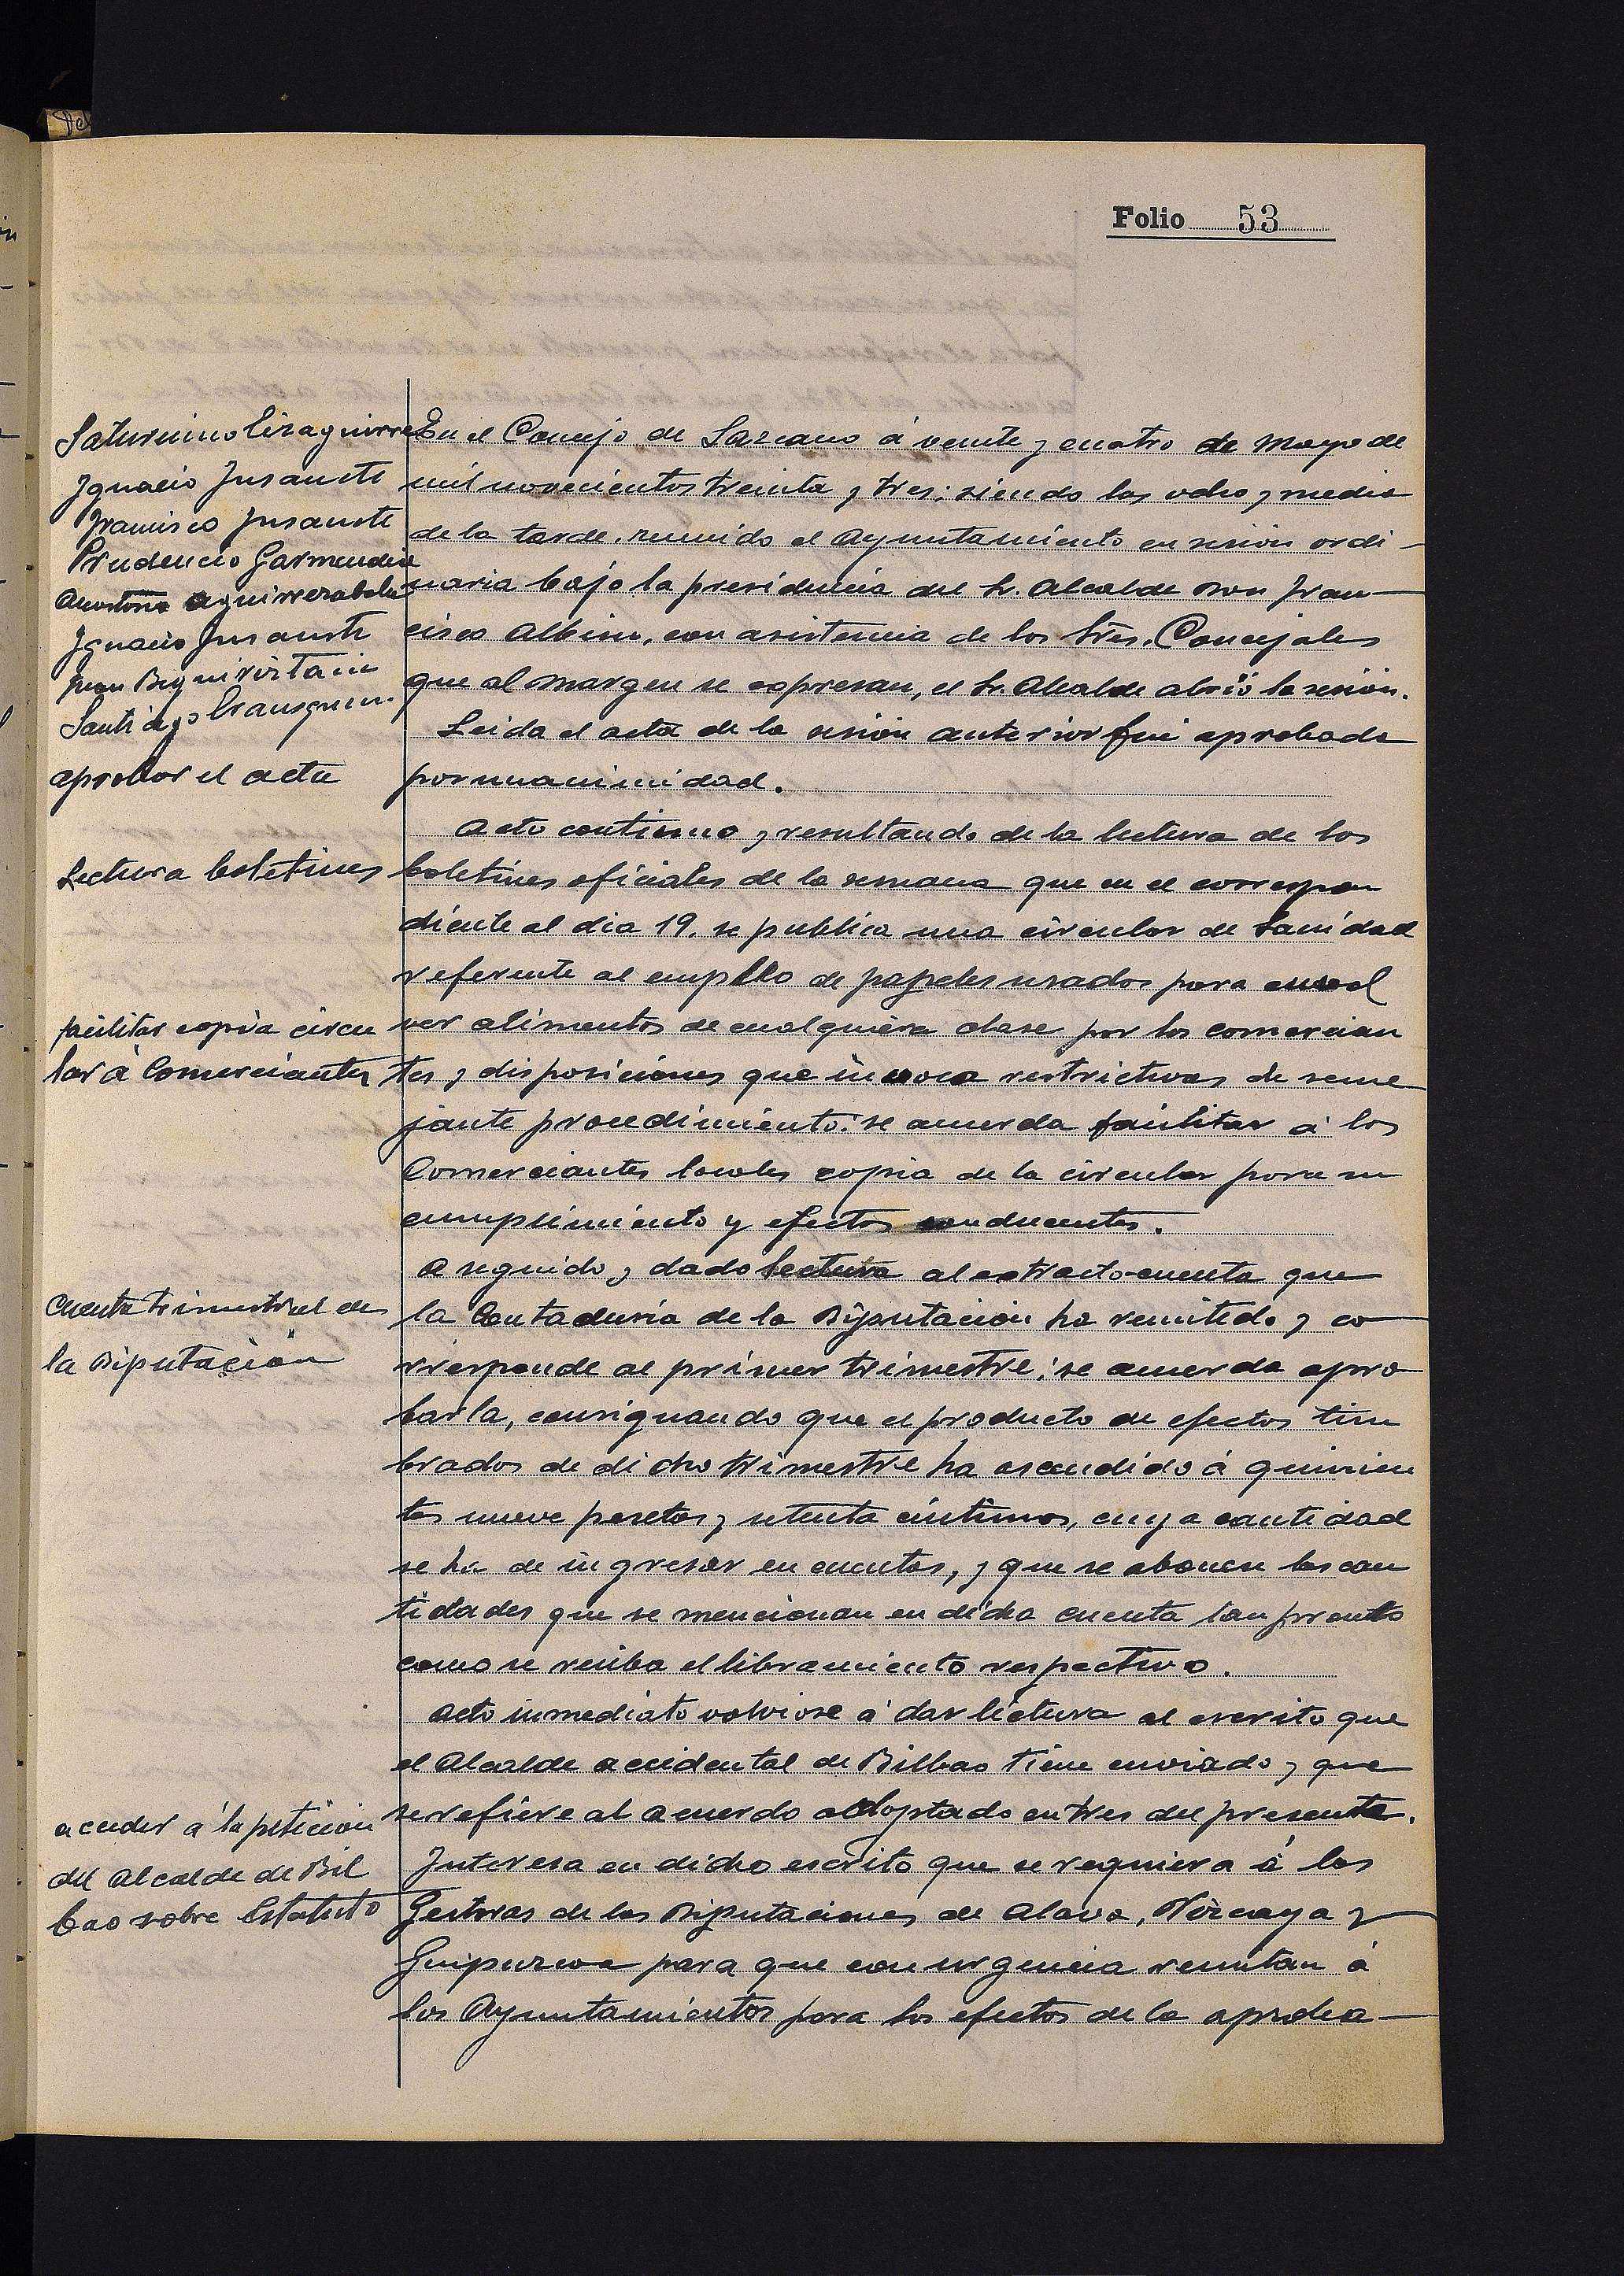 Folio 53
Saturnino Eizaguirre
Ignacio Insausti
Francisco Insausti
Prudencio Garmendia
Aguirrezabala
Ignacio Insausti
Juan Beguiristain
Santiago
aprobar el acta
Lectura boletines
facilitar copia circu
lar á Comerciantes
Cuenta trimestral de
la Diputación
acceder á la petición
del Alcalde de Bil
bao sobre Estatuto
En el Concejo de Lazcano á veinte y cuatro de Mayo de
mil novecientos treinta y tres: siendo las ocho y media
de la tarde, reunido el Ayuntamiento en sesión ordi-
naria bajo la presidencia del Sr. Alcalde Don Fran-
cisco Albisu, con asistencia de los Sres. Concejales
que al margen se expresan, el Sr. Alcalde abrió la sesión.
Leida el acta de la sesión anterior fue aprobada
por unanimidad.
Acto continuo y resultando de la lectura de los
boletines oficiales de la semana que en el correspon
diente al dia 19, se publica una circular de Sanidad
referente al empleo de papeles usados para envol
ver alimentos de cualquiera clase por los comercian
tes y disposiciones que invoca restrictivas de seme
jante procedimiento: se acuerda facilitar á los
Comerciantes locales copia de la circular para su
cumplimiento y efectos conducentes.
A seguido y dado lectura al extracto-cuenta que
la Contaduria de la Diputación ha remitido y co
rresponde al primer trimestre: se acuerda apro
barla, consignando que el producto de efectos tim
brados de dicho trimestre ha ascendido á quinien
tas nueve pesetas y setenta céntimos, cuya cantidad
se ha de ingresar en cuentas, y que se abonen las can
tidades que se mencionan en dicha cuenta tan pronto
como se reciba el libramiento respectivo.
Acto inmediato volviose á dar lectura al escrito que
el Alcalde accidental de Bilbao tiene enviado y que
se refiere al acuerdo adoptado en tres del presente.
Interesa en dicho escrito que se requiera á las
Gestoras de las Diputaciones de Alava, Vizcaya y
Guipuzcoa para que con urgencia remitan á
los Ayuntamientos para los efectos de la aproba-